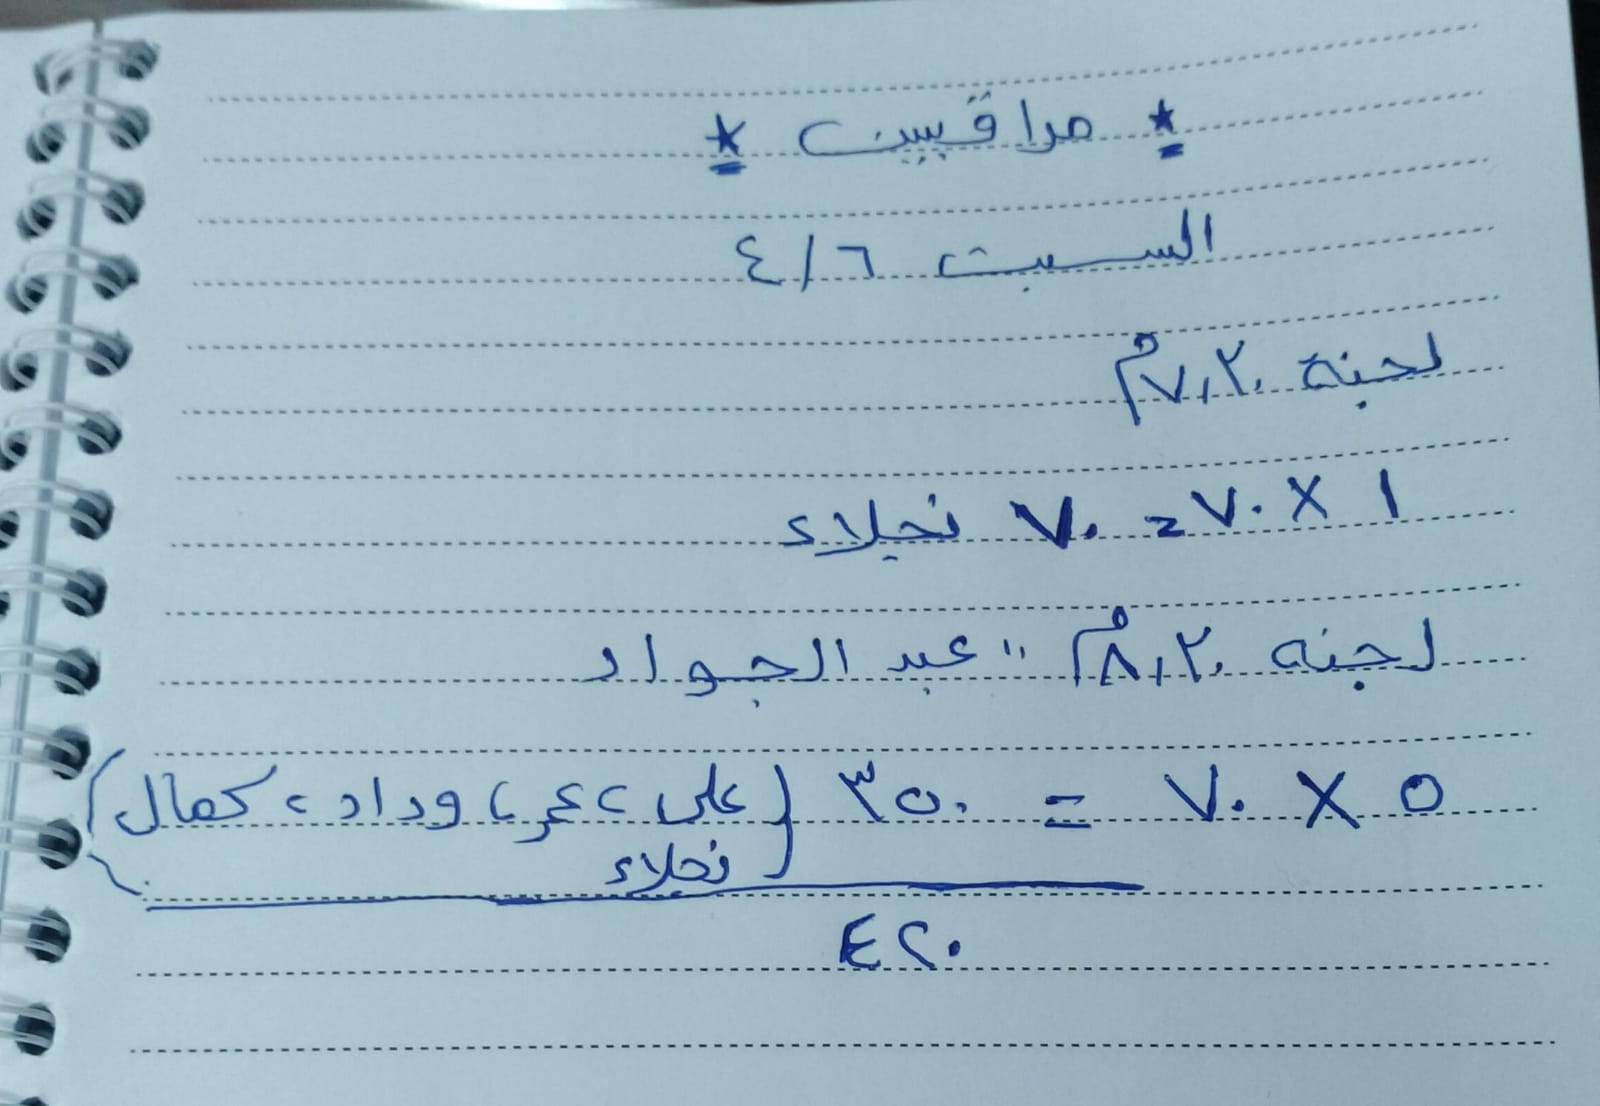 * مراقبين *
السبت ٤/٦
لجنة ٧,٢٠م
١ × ٧٠ = ٧٠ نجلاء
لجنه ٨,٢٠م " عبد الجواد
٥ × ٧٠ = ٣٥٠ (على، عمر، وداد، كمال
نجلاء)
٤٢٠